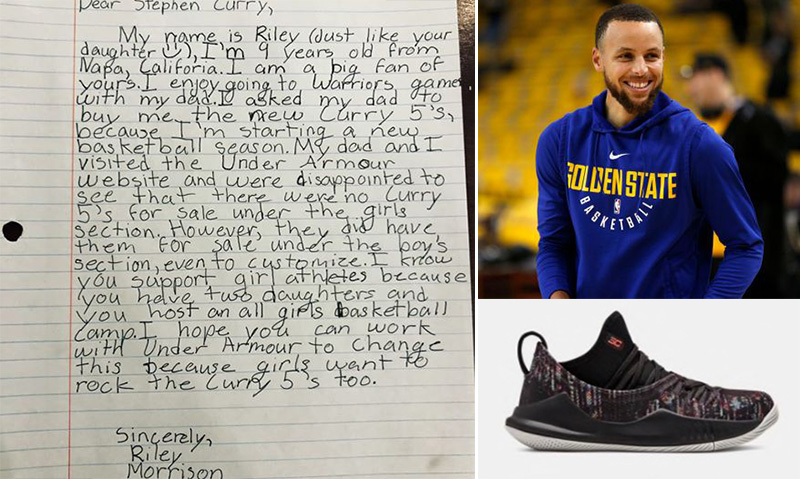 Dear Stephen Curry,
My name is Riley (Just like your
daughter), I'm 9 years old from
Napa, Califoria. I am a big fan of
yours. I enjoy going to Warriors games
with my dad. I asked my dad to
buy me the new Curry 5's,
because I'm starting a new
basketball season. My dad and I
visited the Under Armour
website and were disappointed to
see that there were no Curry
5's for sale under the girls
section. However, they did have
them for sale under the boy's
section, even to customize. I know
you support girl athletes because
you have two daughters and
you host an all girls basketball
camp. I hope you can work
with Under Armour to change
this because girls want to
rock the Curry 5's too.
Sincerely,
Riley
Morrison
GOLDEN STATE
BASKETBALL